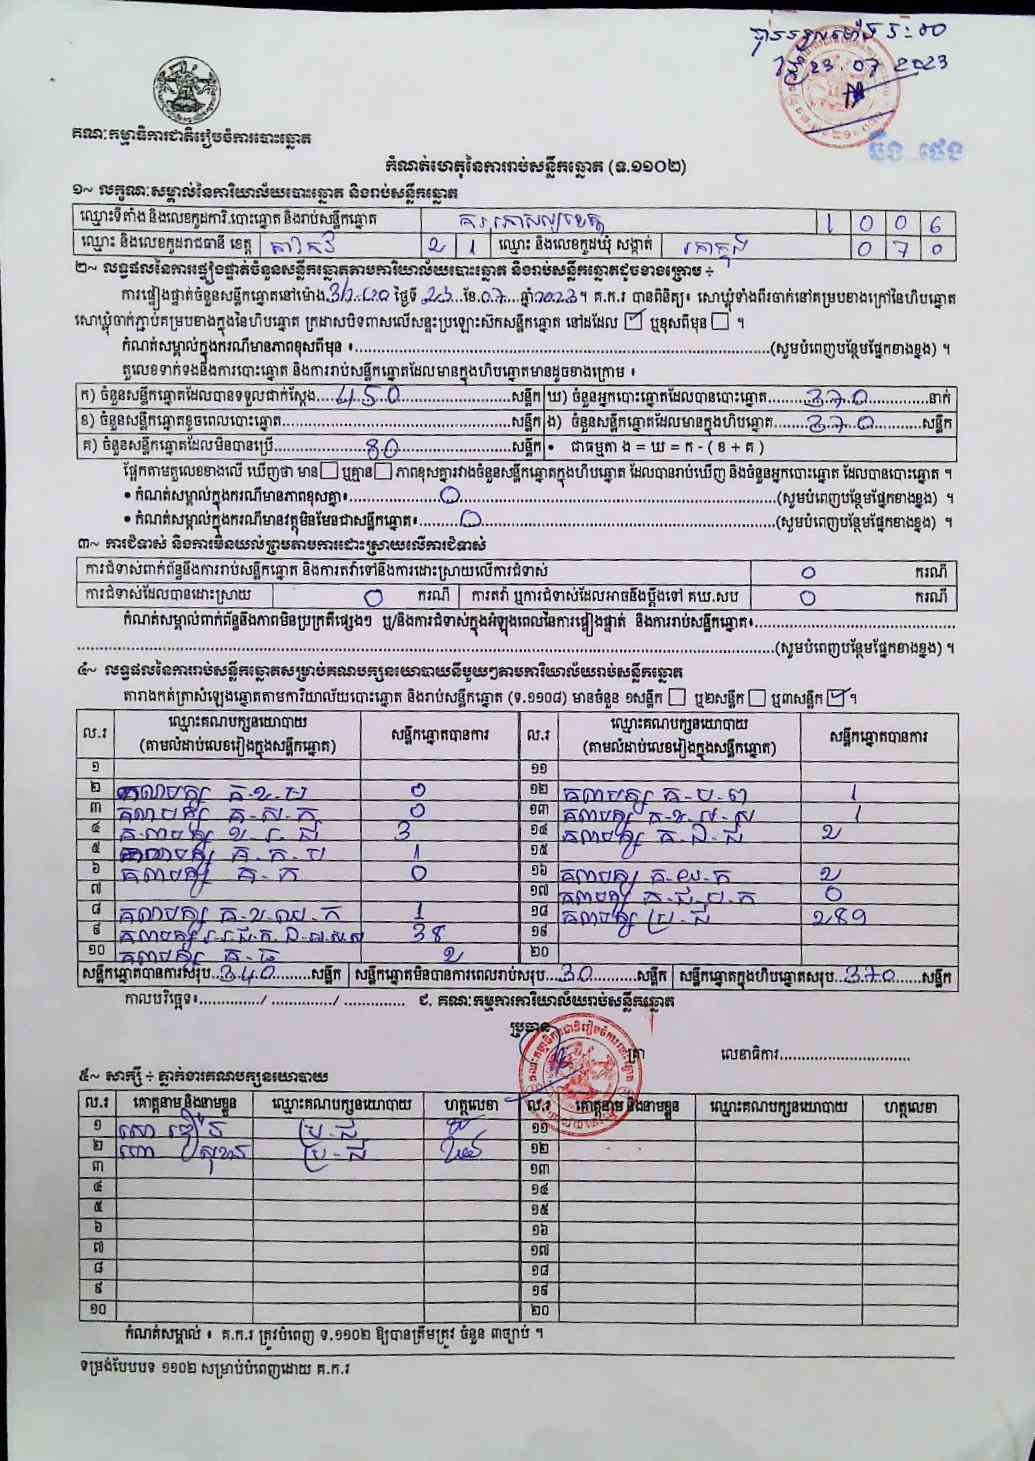 23.07.2023
គណៈកម្មាធិការជាតិរៀបចំការបោះឆ្នោត
កំណត់ហេតុនៃការរាប់សន្លឹកឆ្នោត (ទ.១១០២)
១~ លក្ខណៈសម្គាល់នៃការិយាល័យបោះឆ្នោត និងរាប់សន្លឹកឆ្នោត
ឈ្មោះទីតាំង និងលេខកូដការិ.បោះឆ្នោត និងរាប់សន្លឹកឆ្នោត 1 0 0 6
ឈ្មោះ និងលេខកូដរាជធានី ខេត្ត តាកែវ 2 1 ឈ្មោះ និងលេខកូដឃុំ សង្កាត់ 0 7 0
២~ លទ្ធផលនៃការផ្ទៀងផ្ទាត់ចំនួនសន្លឹកឆ្នោតតាមការិយាល័យបោះឆ្នោត និងរាប់សន្លឹកឆ្នោតដូចខាងក្រោម ÷
ការផ្ទៀងផ្ទាត់ចំនួនសន្លឹកឆ្នោតនៅម៉ោង ថ្ងៃទី 23 ខែ 07 ឆ្នាំ 2023 ។ គ.ក.រ បានពិនិត្យ៖ សោឃ្លុំទាំងពីរចាក់នៅគម្របខាងក្រៅនៃហិបឆ្នោត
សោឃ្លុំចាក់ភ្ជាប់គម្របខាងក្នុងនៃហិបឆ្នោត ក្រដាសបិទពាសលើសន្ទះប្រឡោះស៊កសន្លឹកឆ្នោត នៅដដែល ☑ ឬខុសពីមុន ☐ ។
កំណត់សម្គាល់ក្នុងករណីមានភាពខុសពីមុន ៖ (សូមបំពេញបន្ថែមផ្នែកខាងខ្នង) ។
តួលេខទាក់ទងនឹងការបោះឆ្នោត និងការរាប់សន្លឹកឆ្នោតដែលមានក្នុងហិបឆ្នោតមានដូចខាងក្រោម ៖
ក) ចំនួនសន្លឹកឆ្នោតដែលបានទទួលជាក់ស្ដែង 450 សន្លឹក ឃ) ចំនួនអ្នកបោះឆ្នោតដែលបានបោះឆ្នោត 370 នាក់
ខ) ចំនួនសន្លឹកឆ្នោតខូចពេលបោះឆ្នោត សន្លឹក ង) ចំនួនសន្លឹកឆ្នោតដែលមានក្នុងហិបឆ្នោត 370 សន្លឹក
គ) ចំនួនសន្លឹកឆ្នោតដែលមិនបានប្រើ 80 សន្លឹក • ជាធម្មតា ង = ឃ = ក - ( ខ + គ )
ផ្អែកតាមតួលេខខាងលើ ឃើញថា មាន ☐ ឬគ្មាន ☐ ភាពខុសគ្នារវាងចំនួនសន្លឹកឆ្នោតក្នុងហិបឆ្នោត ដែលបានរាប់ឃើញ និងចំនួនអ្នកបោះឆ្នោត ដែលបានបោះឆ្នោត ។
• កំណត់សម្គាល់ក្នុងករណីមានភាពខុសគ្នា៖ 0 (សូមបំពេញបន្ថែមផ្នែកខាងខ្នង) ។
• កំណត់សម្គាល់ក្នុងករណីមានវត្ថុមិនមែនជាសន្លឹកឆ្នោត៖ 0 (សូមបំពេញបន្ថែមផ្នែកខាងខ្នង) ។
៣~ ការជំទាស់ និងការមិនយល់ព្រមតាមការដោះស្រាយលើការជំទាស់
ការជំទាស់ពាក់ព័ន្ធនឹងការរាប់សន្លឹកឆ្នោត និងការតវ៉ាទៅនឹងការដោះស្រាយលើការជំទាស់ 0 ករណី
ការជំទាស់ដែលបានដោះស្រាយ 0 ករណី ការតវ៉ា ឬការជំទាស់ដែលអាចនឹងប្ដឹងទៅ គឃ.សប 0 ករណី
កំណត់សម្គាល់ពាក់ព័ន្ធនឹងភាពមិនប្រក្រតីផ្សេងៗ ឬ/និងការជំទាស់ក្នុងអំឡុងពេលនៃការផ្ទៀងផ្ទាត់ និងការរាប់សន្លឹកឆ្នោត៖
(សូមបំពេញបន្ថែមផ្នែកខាងខ្នង) ។
៤~ លទ្ធផលនៃការរាប់សន្លឹកឆ្នោតសម្រាប់គណបក្សនយោបាយនីមួយៗតាមការិយាល័យរាប់សន្លឹកឆ្នោត
តារាងកត់ត្រាសំឡេងឆ្នោតតាមការិយាល័យបោះឆ្នោត និងរាប់សន្លឹកឆ្នោត (ទ.១១០៨) មានចំនួន ១សន្លឹក ☐ ឬ២សន្លឹក ☐ ឬ៣សន្លឹក ☑ ។
ល.រ ឈ្មោះគណបក្សនយោបាយ (តាមលំដាប់លេខរៀងក្នុងសន្លឹកឆ្នោត) សន្លឹកឆ្នោតបានការ ល.រ ឈ្មោះគណបក្សនយោបាយ (តាមលំដាប់លេខរៀងក្នុងសន្លឹកឆ្នោត) សន្លឹកឆ្នោតបានការ
១ ១១
២ គណបក្ស 0 ១២ គណបក្ស 1
៣ គណបក្ស 0 ១៣ គណបក្ស 1
៤ គណបក្ស 3 ១៤ គណបក្ស 2
៥ គណបក្ស 1 ១៥
៦ គណបក្ស 0 ១៦ គណបក្ស 2
៧ ១៧ គណបក្ស 0
៨ គណបក្ស 1 ១៨ គណបក្ស ប្រ.ជ 289
៩ គណបក្ស 38 ១៩
១០ គណបក្ស 2 ២០
សន្លឹកឆ្នោតបានការសរុប 340 សន្លឹក សន្លឹកឆ្នោតមិនបានការពេលរាប់សរុប 30 សន្លឹក សន្លឹកឆ្នោតក្នុងហិបឆ្នោតសរុប 370 សន្លឹក
កាលបរិច្ឆេទ៖ / / ជ. គណៈកម្មការការិយាល័យរាប់សន្លឹកឆ្នោត
ប្រធាន
ត្រា លេខាធិការ
៥~ សាក្សី ÷ ភ្នាក់ងារគណបក្សនយោបាយ
ល.រ គោត្តនាម និងនាមខ្លួន ឈ្មោះគណបក្សនយោបាយ ហត្ថលេខា ល.រ គោត្តនាម និងនាមខ្លួន ឈ្មោះគណបក្សនយោបាយ ហត្ថលេខា
១ ប្រ.ជ ១១
២ ប្រ.ជ ១២
៣ ១៣
៤ ១៤
៥ ១៥
៦ ១៦
៧ ១៧
៨ ១៨
៩ ១៩
១០ ២០
កំណត់សម្គាល់ ៖ គ.ក.រ ត្រូវបំពេញ ទ.១១០២ ឱ្យបានត្រឹមត្រូវ ចំនួន ៣ច្បាប់ ។
ទម្រង់បែបបទ ១១០២ សម្រាប់បំពេញដោយ គ.ក.រ